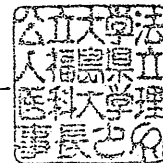 公立大学法
人福島県立
医科大学理
事長之印